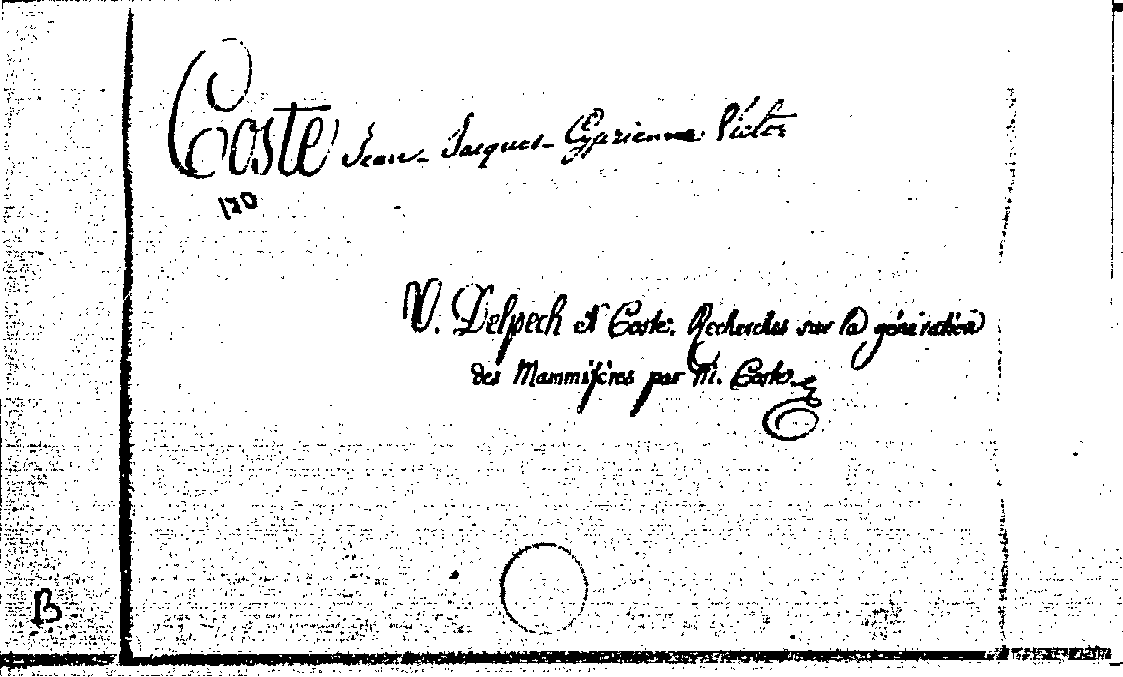 Coste Jean-Jacques-Cyprienne Victor
120
V. Delpech et Coste. Recherches sur la génération
des Mammifères par M. Coste
B